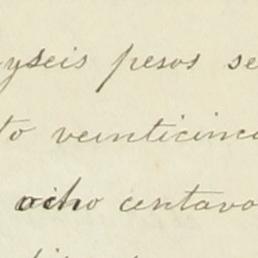 yseis pesos se
to veinticinco
ocho centavo